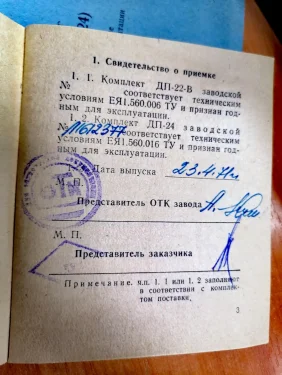 1. Свидетельство о приемке
1. 1. Комплект ДП-22-В заводской
№ соответствует техническим
условиям ЕЯ1.560.006 ТУ и признан год-
ным для эксплуатации.
1. 2. Комплект ДП-24 заводской
№ 11612377 соответствует техническим
условиям ЕЯ1.560.016 ТУ и признан год-
ным для эксплуатации.
Дата выпуска 23.4.71г
М. П.
Представитель ОТК завода
М. П.
Представитель заказчика
Примечание. п.п. 1. 1 или 1. 2 заполняют
в соответствии с комплек-
том поставки.
3